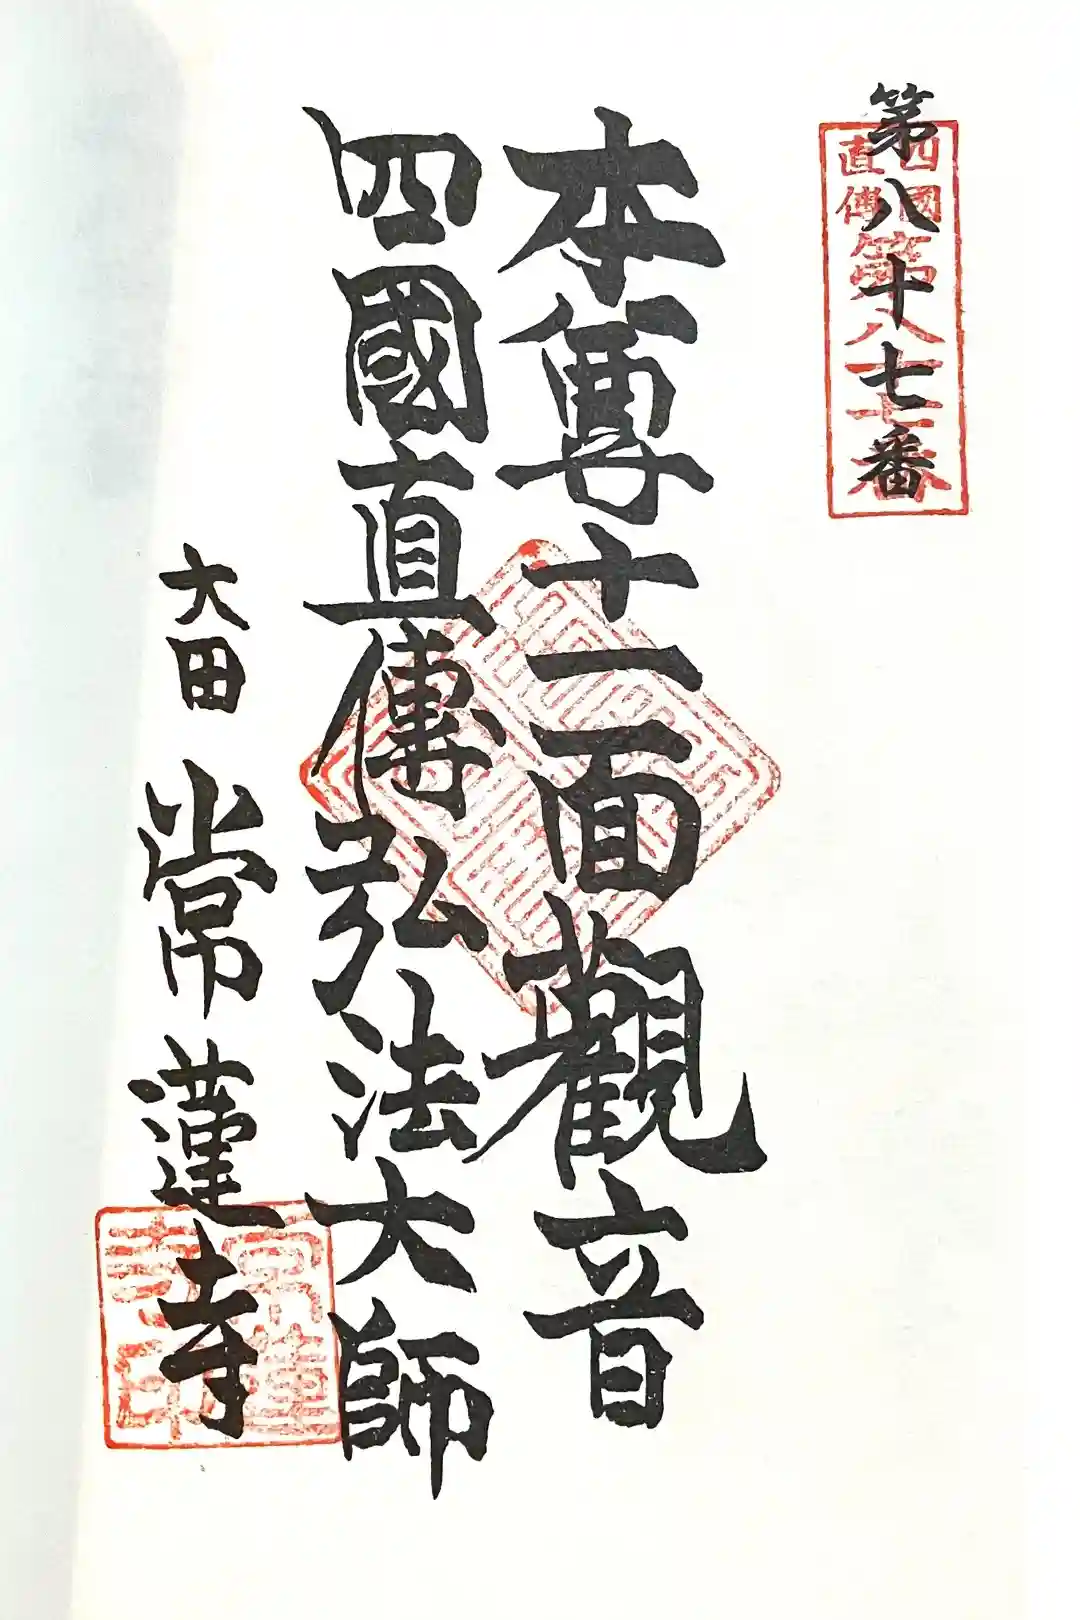 第八十七番
四國
直傳
第八十七番
本尊十一面觀音
四國直傳弘法大師
大田
常蓮寺
常蓮
寺印